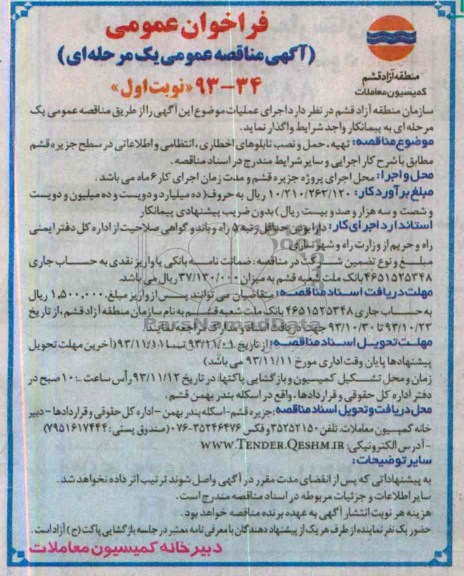 فراخوان عمومی
(آگهی مناقصه عمومی یک مرحله ای)
۹۳-۳۴ «نوبت اول»
منطقه آزاد قشم
کمیسیون معاملات
سازمان منطقه آزاد قشم در نظر دارد اجرای عملیات موضوع این آگهی را از طریق مناقصه عمومی یک
مرحله ای به پیمانکار واجد شرایط واگذار نماید.
موضوع مناقصه: تهیه، حمل و نصب تابلوهای اخطاری، انتظامی و اطلاعاتی در سطح جزیره قشم
مطابق با شرح کار اجرایی و سایر شرایط مندرج در اسناد مناقصه.
محل و اجرا: محل اجرای پروژه جزیره قشم و مدت زمان اجرای کار ۶ ماه می باشد.
مبلغ برآورد کار: ۱۰/۲۱۰/۲۶۳/۱۳۰ ریال به حروف (ده میلیارد و دویست و ده میلیون و دویست
و شصت و سه هزار و صد و بیست ریال) بدون ضریب پیشنهادی پیمانکار
استاندارد اجرای کار: دارا بودن حداقل رتبه ۵ راه و باند و گواهی صلاحیت از اداره کل دفتر ایمنی
راه و حریم از وزارت راه و شهرسازی
مبلغ و نوع تضمین شرکت در مناقصه: ضمانت نامه بانکی یا واریز نقدی به حساب جاری
۴۶۵۱۵۲۵۳۴۸ بانک ملت شعبه قشم به میزان ۳۷/۱۳۰/۰۰۰ ریال می باشد.
مهلت دریافت اسناد مناقصه: متقاضیان می توانند پس از واریز مبلغ ۱,۵۰۰,۰۰۰ ریال
به حساب جاری ۴۶۵۱۵۲۵۳۴۸ بانک ملت شعبه قشم به نام سازمان منطقه آزاد قشم، از تاریخ
۹۳/۱۰/۲۳ تا ۹۳/۱۰/۳۰ جهت دریافت اسناد و مدارک مراجعه نمایند.
مهلت تحویل اسناد مناقصه: از تاریخ تا ۹۳/۱۱/۱۱ (آخرین مهلت تحویل
پیشنهادها پایان وقت اداری مورخ ۹۳/۱۱/۱۱ می باشد)
زمان و محل تشکیل کمیسیون و بازگشایی پاکتها: در تاریخ ۹۳/۱۱/۱۲ رأس ساعت ۱۰ صبح در
دفتر اداره کل حقوقی و قراردادها، واقع در اسکله بندر بهمن قشم.
محل دریافت و تحویل اسناد مناقصه: جزیره قشم- اسکله بندر بهمن -اداره کل حقوقی و قراردادها- دبیر
خانه کمیسیون معاملات، تلفن ۳۵۲۵۲۱۵۰ و فکس ۳۵۲۴۶۴۷۶-۰۷۶ (صندوق پستی: ۷۹۵۱۶۱۷۴۴۴)
- آدرس الکترونیکی: WWW.TENDER.QESHM.IR
سایر توضیحات:
به پیشنهاداتی که پس از انقضای مدت مقرر در آگهی واصل شوند ترتیب اثر داده نخواهد شد.
سایر اطلاعات و جزئیات مربوطه در اسناد مناقصه مندرج است.
هزینه هر نوبت انتشار آگهی به عهده برنده مناقصه خواهد بود.
حضور یک نفر نماینده از طرف هر یک از پیشنهاد دهندگان با معرفی نامه معتبر در جلسه بازگشایی پاکت (ج) آزاد است.
دبیرخانه کمیسیون معاملات